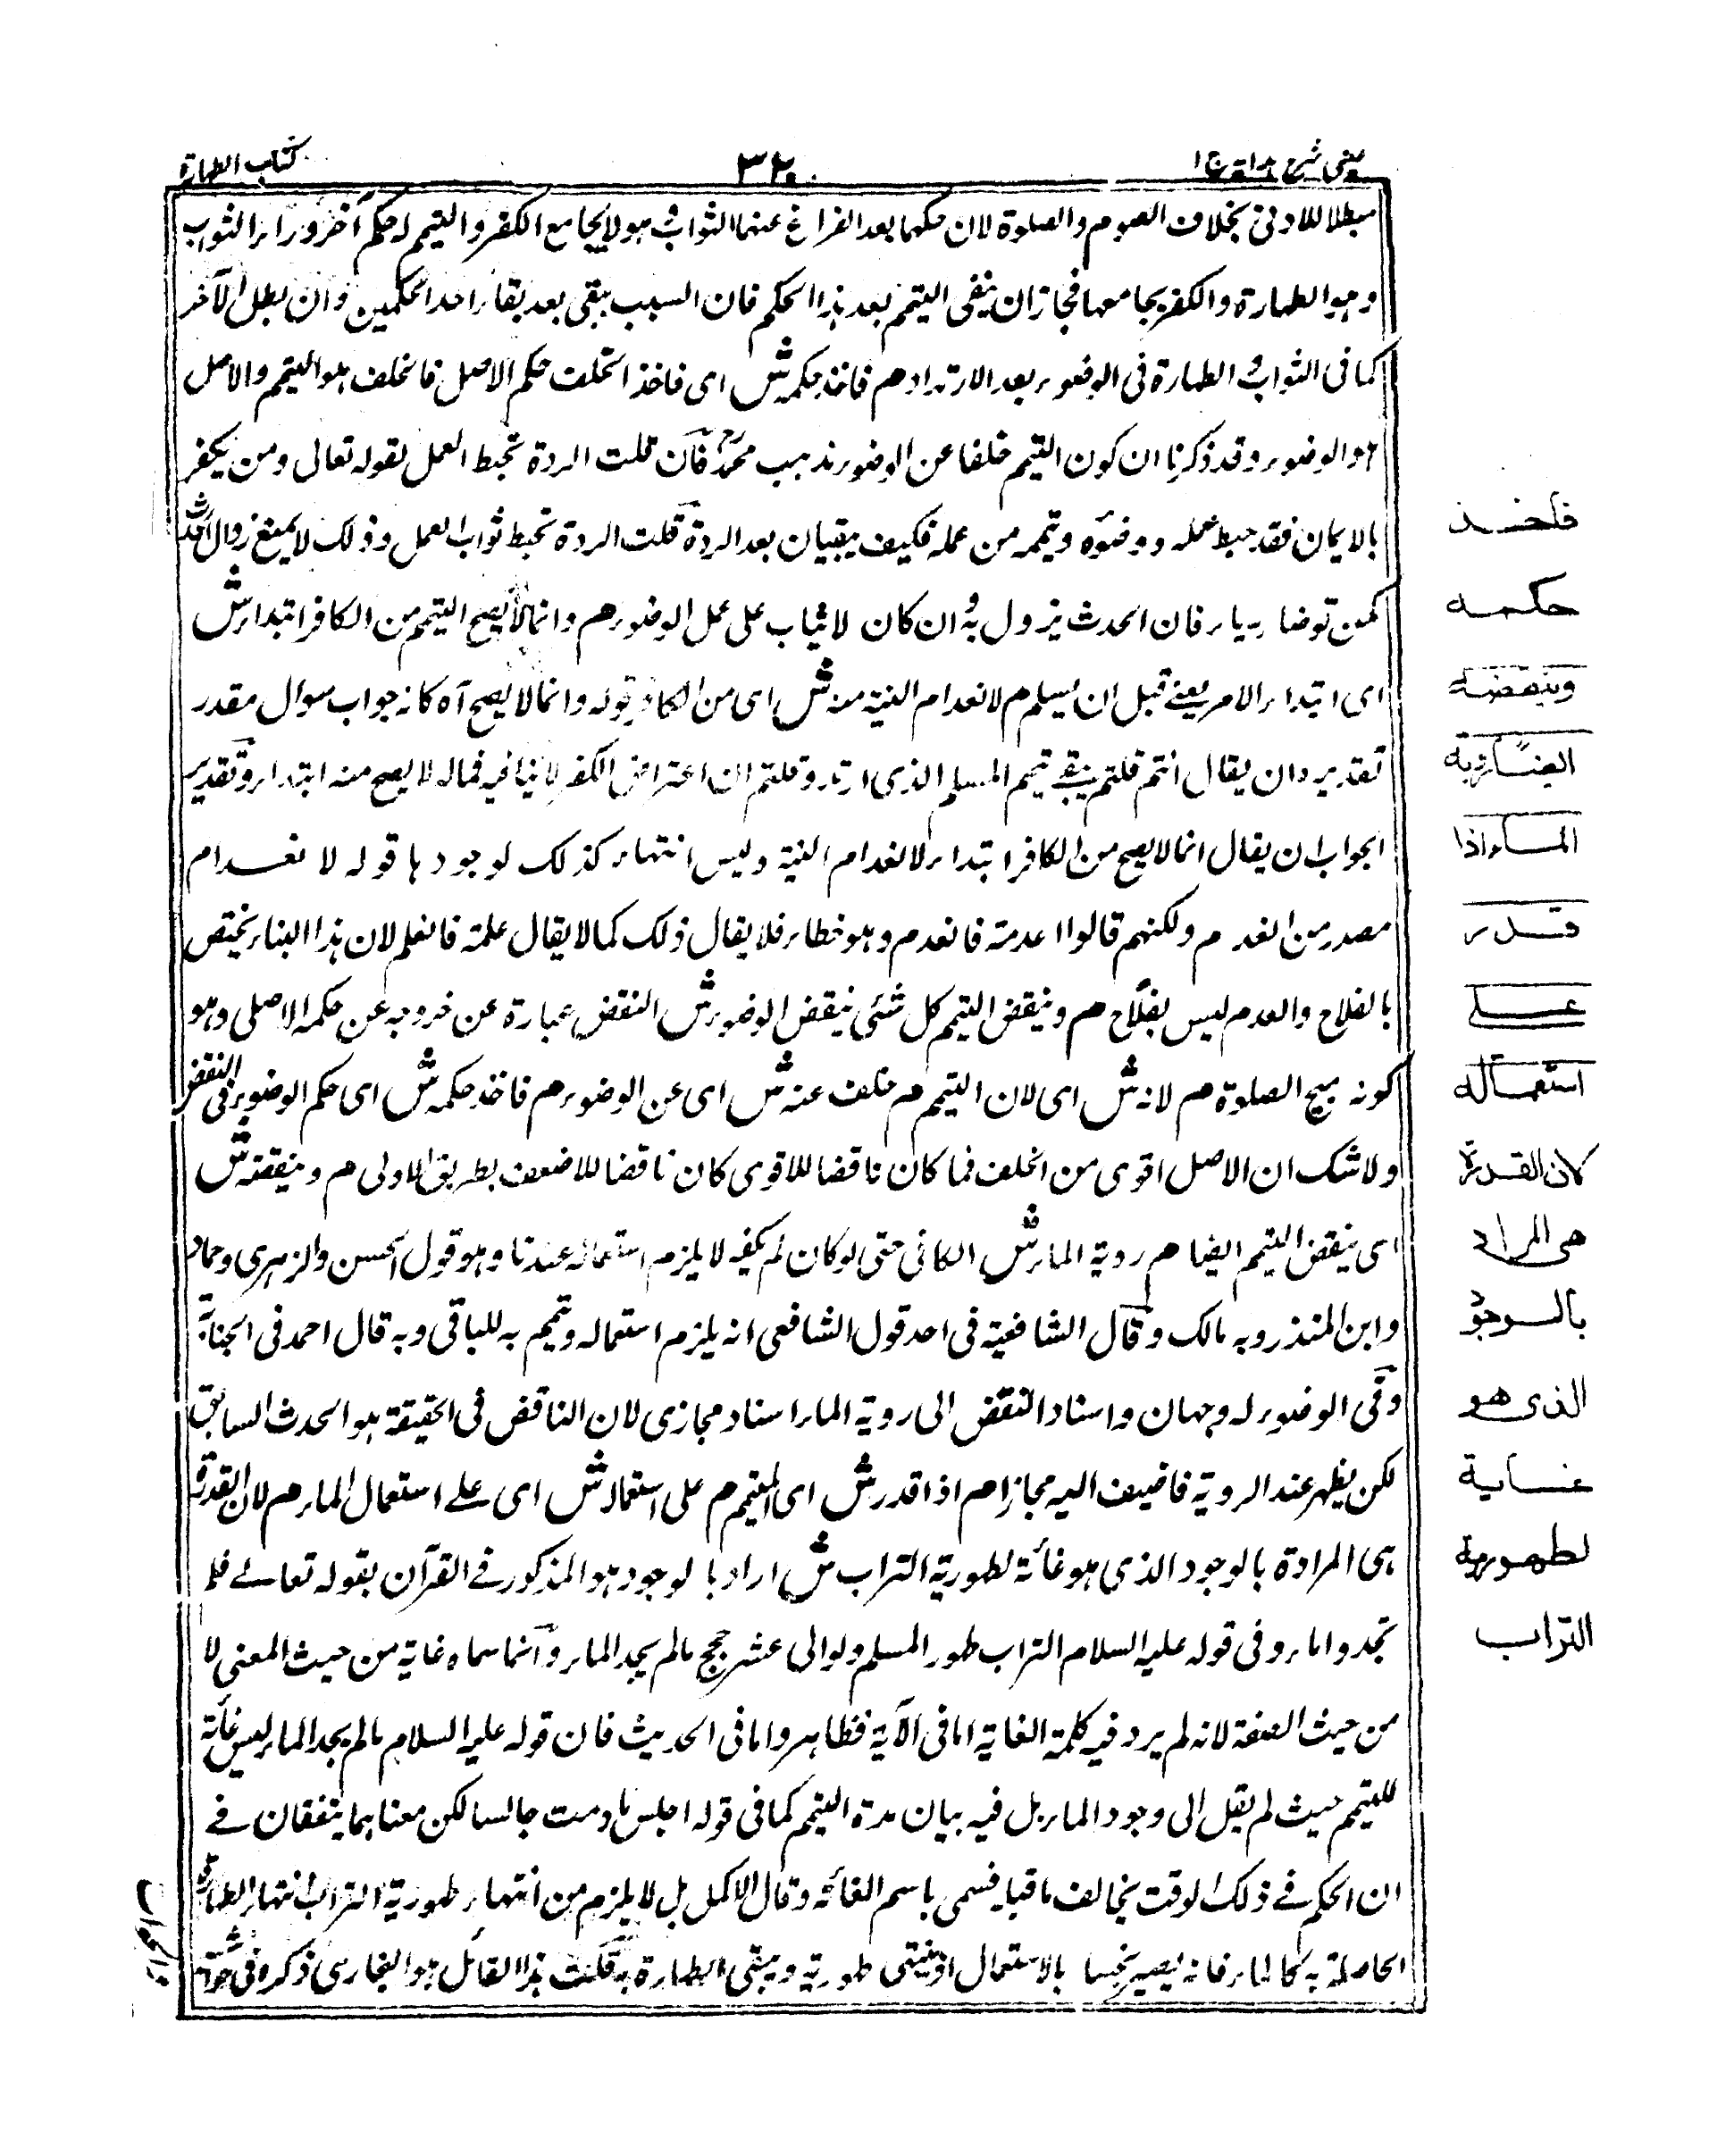 عینی شرح ہدایہ ج ۱
۳۲۰
کتاب الطہارۃ
مبطلا للادنی بخلاف الصوم والصلوۃ لان حکمہما بعد الفراغ عنہما الثواب وہو لا یجامع الکفر والتیمم لہ حکم آخر وراء الثواب
وہو الطہارۃ والکفر یجامعہا فجاز ان یبقی التیمم بعد ہذا الحکم فان السبب یبقی بعد بقاء احد الحکمین وان بطل الآخر
کما فی الثواب والطہارۃ فی الوضوء بعد الارتداد م فاخذ حکمہ ش ای فاخذ الخلف حکم الاصل فالخلف ہو التیمم والاصل
ہو الوضوء وقد ذکرنا ان کون التیمم خلفا عن الوضوء مذہب محمدؒ فان قلت الردۃ تحبط العمل لقولہ تعالی ومن یکفر
بالایمان فقد حبط عملہ ووضوٓہ وتیممہ من عملہ فکیف یبقیان بعد الردۃ قلت الردۃ تحبط ثواب العمل وذلک لا یمنع زوال الحدث
کمن توضا ریاء فان الحدث یزول بہ وان کان لا یثاب علی عمل الوضوء م وانما لا یصح التیمم من الکافر ابتداء ش
ای ابتداء الامر یعنے قبل ان یسلم م لانعدام النیۃ منہ ش ای من الکافر وقولہ وانما لا یصح آہ کانہ جواب سوال مقدر
تقدیرہ ان یقال انتم قلتم یبقے تیمم المسلم الذی ارتد وقلتم ان اعتراض الکفر لا ینافیہ فمالہ لا یصح منہ ابتداء وتقدیر
الجواب ان یقال انما لا یصح من الکافر ابتداء لانعدام النیۃ ولیس انتہاء کذلک لوجودہا قولہ لانعدام
مصدر من انعدم ولکنہم قالوا اعدمتہ فانعدم وہو خطاء فلا یقال ذلک کما لا یقال علمتہ فانعلم لان ہذا البناء یختص
بالعلاج والعدم لیس بعلاج م وینقض التیمم کل شئی ینقض الوضوء ش النقض عبارۃ عن خروجہ عن حکمہ الاصلی وہو
کونہ مبیح الصلوۃ م لانہ ش ای لان التیمم م خلف عنہ ش ای عن الوضوء م فاخذ حکمہ ش ای حکم الوضوء فی النقض
ولا شک ان الاصل اقوی من الخلف فما کان ناقضا للاقوی کان ناقضا للاضعف بطریق الاولی م وینقضہ ش
ای ینقض التیمم ایضا م رویۃ الماء ش الکافی حتی لو کان لم یکفہ لا یلزم استعمالہ عندنا وہو قول الحسن والزہری وحماد
وابن المنذر وبہ مالک وقال الشافعیۃ فی احد قول الشافعی انہ یلزم استعمالہ وتیمم بہ للباقی وبہ قال احمد فی الجنابۃ
وفی الوضوء لہ وجہان واسناد النقض الی رویۃ الماء اسناد مجازی لان الناقض فی الحقیقۃ ہو الحدث السابق
لکن یظہر عند الرویۃ فاضیف الیہ مجازا م اذا قدر ش ای المتیمم م علی استعمالہ ش ای علے استعمال الماء م لان القدرۃ
ہی المرادۃ بالوجود الذی ہو غائۃ لطہوریۃ التراب ش اراد بالوجود ہو المذکور فے القرآن بقولہ تعالے فلم
تجدوا ماء وفی قولہ علیہ السلام التراب طہور المسلم ولو الی عشر حجج مالم یجد الماء وانما سماہ غایۃ من حیث المعنی لا
من حیث الصفۃ لانہ لم یرد فیہ کلمۃ الغایۃ اما فی الآیۃ فظاہر واما فی الحدیث فان قولہ علیہ السلام مالم یجد الماء لیس غائۃ
للتیمم حیث لم یقل الی وجود الماء بل فیہ بیان مدۃ التیمم کما فی قولہ اجلس مادمت جالسا لکن معناہما یتفقان فے
ان الحکم فے ذلک الوقت یخالف ماقبلہ فسمی باسم الغائۃ وقال الاکمل بل لا یلزم من انتہاء طہوریۃ التراب انتہاء الطہارۃ
الحاصلۃ بہ کالماء فانہ یصیر نجسا بالاستعمال او ینتہی طہوریۃ ویبقی الطہارۃ بہ قلت ہذا القائل ہو الخبازی ذکرہ فی
فاخذ
حکمہ
وینقضہ
ایضا رؤیۃ
الماء اذا
قدر
علے
استعمالہ
لان القدرۃ
ھی المراد
بالوجود
الذی ھو
غایۃ
لطھوریۃ
التراب